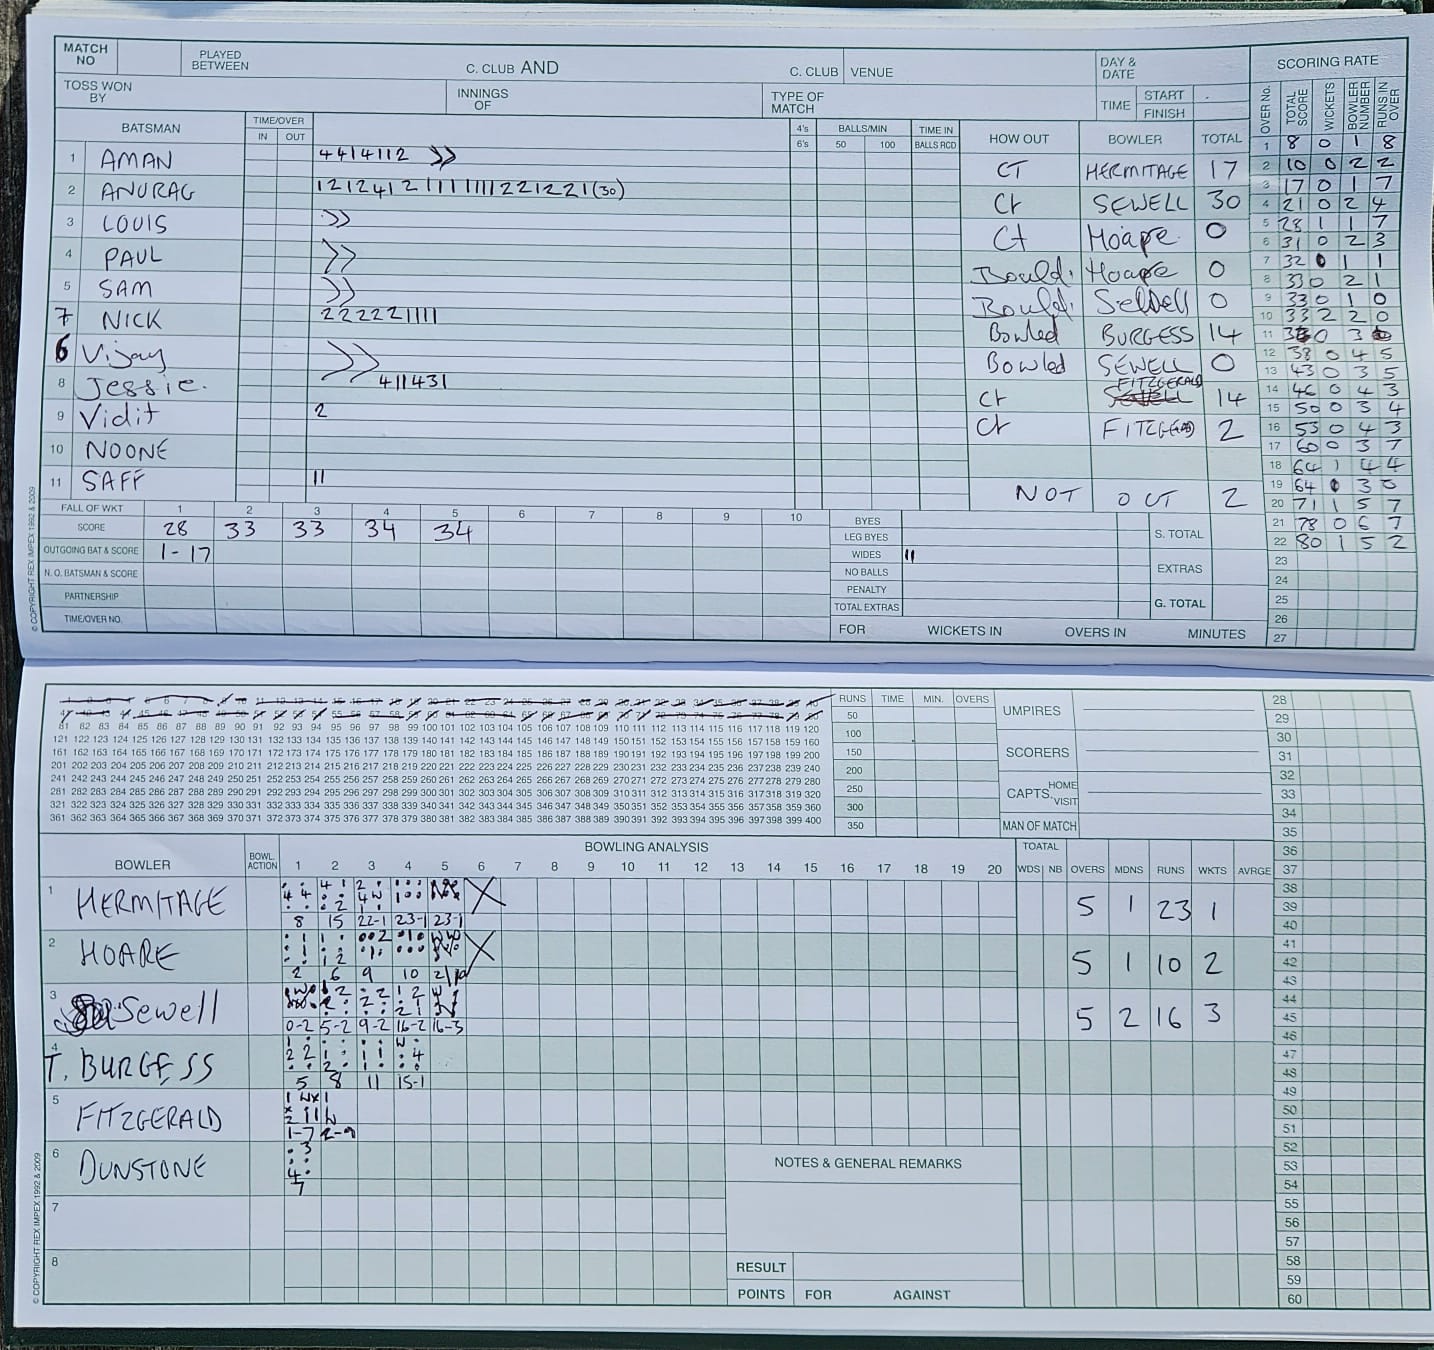 MATCH NO PLAYED BETWEEN C. CLUB AND C. CLUB VENUE DAY & DATE SCORING RATE
TOSS WON BY INNINGS OF TYPE OF MATCH TIME START FINISH
BATSMAN TIME/OVER IN OUT 4's 6's BALLS/MIN 50 100 TIME IN BALLS RCD HOW OUT BOWLER TOTAL OVER No. TOTAL SCORE WICKETS BOWLER NUMBER RUNS IN OVER
1 AMAN 4414112 >> CT HERMITAGE 17
2 ANURAG 1212412111111221221(30) Ct SEWELL 30
3 LOUIS >> Ct Hoare 0
4 PAUL >> Bould. Hoare 0
5 SAM >> Bould. Sewell 0
7 NICK 222221111 Bowled BURGESS 14
6 Vijay >> Bowled SEWELL 0
8 Jessie. 411431 Ct FITZGERALD 14
9 Vidit 2 Ct 2
10 NOONE
11 SAFF 11 NOT OUT 2
1 8 0 1 8
2 10 0 2 2
3 17 0 1 7
4 21 0 2 4
5 28 1 1 7
6 31 0 2 3
7 32 0 1 1
8 33 0 2 1
9 33 0 1 0
10 33 2 2 0
11 0 3
12 38 0 4 5
13 43 0 3 5
14 46 0 4 3
15 50 0 3 4
16 53 0 4 3
17 60 0 3 7
18 64 1 4 4
19 64 3 0
20 71 1 5 7
21 78 0 6 7
22 80 1 5 2
23
24
25
26
27
FALL OF WKT 1 2 3 4 5 6 7 8 9 10
SCORE 28 33 33 34 34
OUTGOING BAT & SCORE 1-17
N.O. BATSMAN & SCORE
PARTNERSHIP
TIME/OVER NO.
BYES
LEG BYES S. TOTAL
WIDES 11
NO BALLS EXTRAS
PENALTY
TOTAL EXTRAS G. TOTAL
FOR WICKETS IN OVERS IN MINUTES
© COPYRIGHT REX IMPEX 1992 & 2009
81 82 83 84 85 86 87 88 89 90 91 92 93 94 95 96 97 98 99 100 101 102 103 104 105 106 107 108 109 110 111 112 113 114 115 116 117 118 119 120
121 122 123 124 125 126 127 128 129 130 131 132 133 134 135 136 137 138 139 140 141 142 143 144 145 146 147 148 149 150 151 152 153 154 155 156 157 158 159 160
161 162 163 164 165 166 167 168 169 170 171 172 173 174 175 176 177 178 179 180 181 182 183 184 185 186 187 188 189 190 191 192 193 194 195 196 197 198 199 200
201 202 203 204 205 206 207 208 209 210 211 212 213 214 215 216 217 218 219 220 221 222 223 224 225 226 227 228 229 230 231 232 233 234 235 236 237 238 239 240
241 242 243 244 245 246 247 248 249 250 251 252 253 254 255 256 257 258 259 260 261 262 263 264 265 266 267 268 269 270 271 272 273 274 275 276 277 278 279 280
281 282 283 284 285 286 287 288 289 290 291 292 293 294 295 296 297 298 299 300 301 302 303 304 305 306 307 308 309 310 311 312 313 314 315 316 317 318 319 320
321 322 323 324 325 326 327 328 329 330 331 332 333 334 335 336 337 338 339 340 341 342 343 344 345 346 347 348 349 350 351 352 353 354 355 356 357 358 359 360
361 362 363 364 365 366 367 368 369 370 371 372 373 374 375 376 377 378 379 380 381 382 383 384 385 386 387 388 389 390 391 392 393 394 395 396 397 398 399 400
RUNS TIME MIN. OVERS
50
100
150
200
250
300
350
UMPIRES
SCORERS
CAPTS. HOME VISIT
MAN OF MATCH
BOWLER BOWL. ACTION BOWLING ANALYSIS TOATAL
1 2 3 4 5 6 7 8 9 10 11 12 13 14 15 16 17 18 19 20 WDS NB OVERS MDNS RUNS WKTS AVRGE
1 HERMITAGE 8 15 22-1 23-1 23-1 5 1 23 1
2 HOARE 2 6 9 10 5 1 10 2
3 Sewell 0-2 5-2 9-2 16-2 16-3 5 2 16 3
4 T. BURGESS 5 8 11 15-1
5 FITZGERALD 1-7 2-9
6 DUNSTONE 7
7
8
NOTES & GENERAL REMARKS
RESULT
POINTS FOR AGAINST
28
29
30
31
32
33
34
35
36
37
38
39
40
41
42
43
44
45
46
47
48
49
50
51
52
53
54
55
56
57
58
59
60
© COPYRIGHT REX IMPEX 1992 & 2009